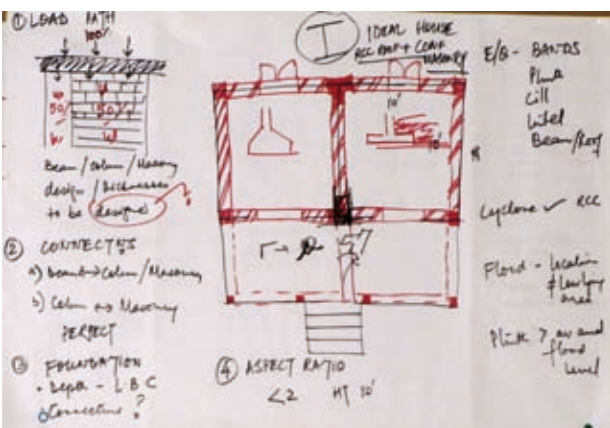 ① LOAD PATH
100%
50%
50%
Beam/Column/Masonry
design/thicknesses
to be designed ?
② CONNECTNS
a) Beam → Column/Masonry
b) Colm ↔ Masonry
PERFECT
③ FOUNDATION
• Depth - LBC
Connection ?
I IDEAL HOUSE
RCC ROOF + CONF
MASONRY
10'
10'
④ ASPECT RATIO
<2 HT 10'
E/Q - BANDS
Plinth
Cill
Lintel
Beam/Roof
Cyclone ✓ RCC
Flood - location
≠ low lying
area
Plinth > av and
flood
level